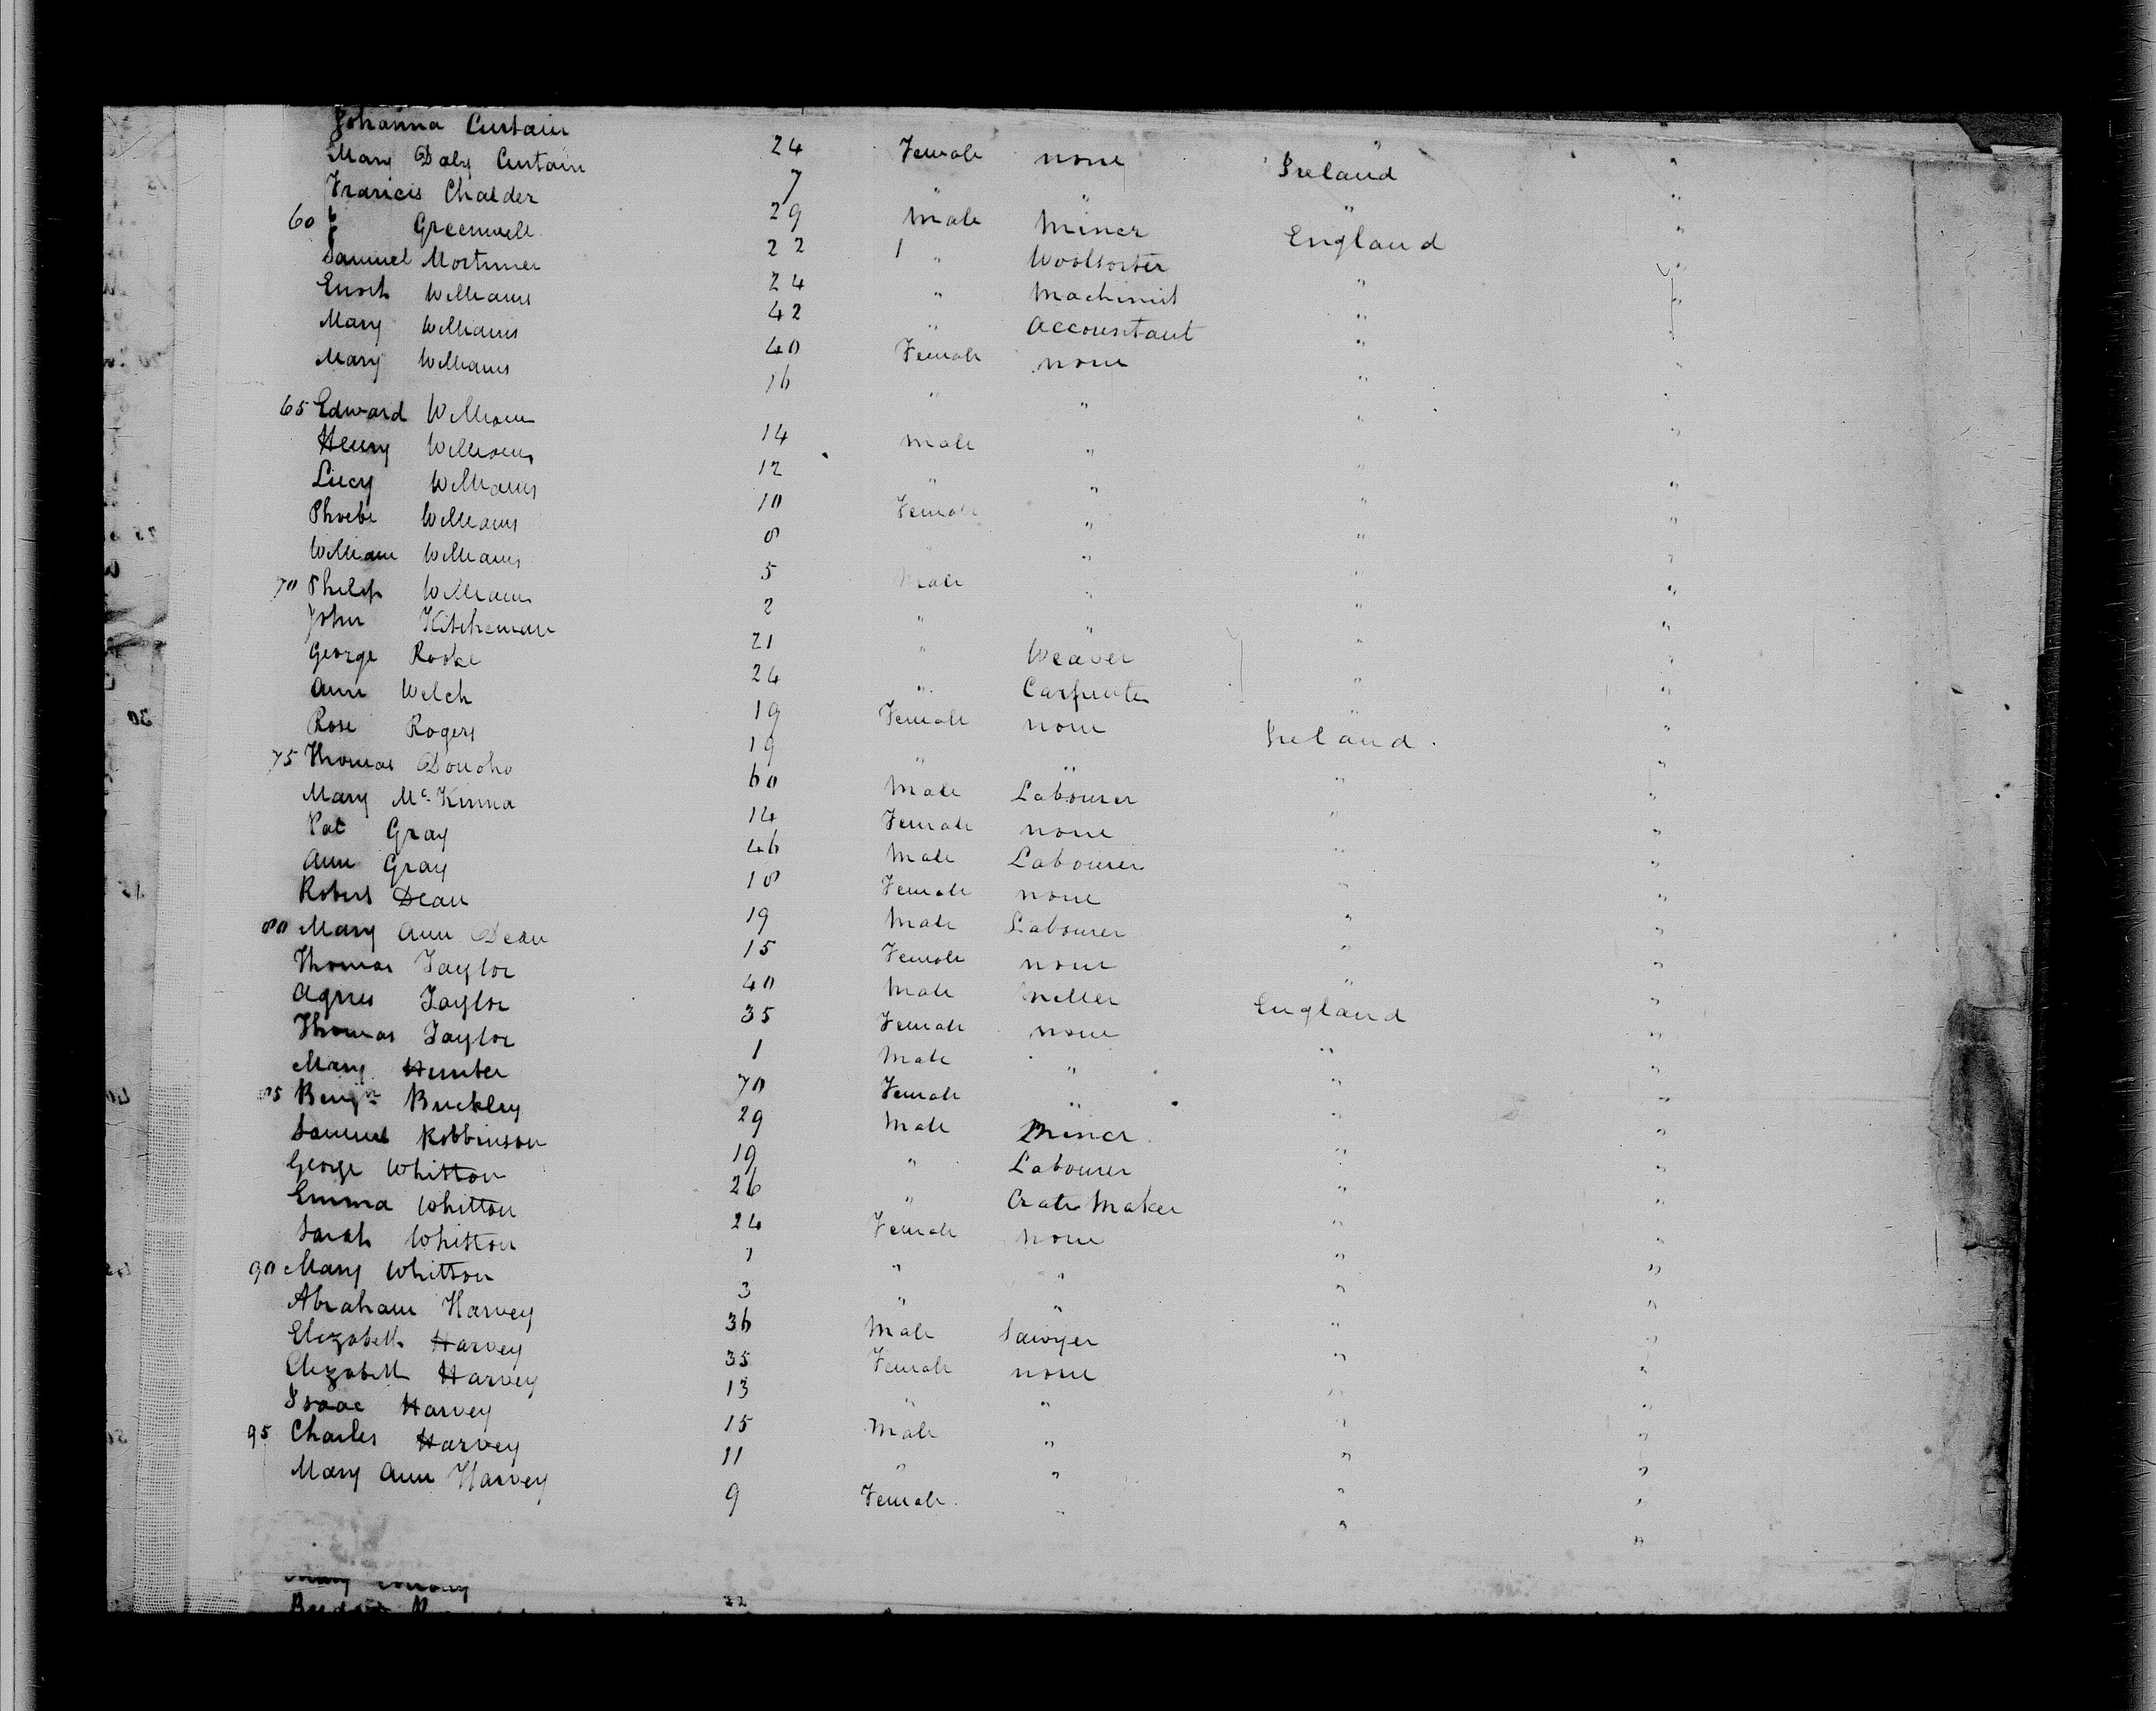 Johanna Curtain 24 Female none Ireland "
Mary Daly Curtain 7 " " " "
Francis Chalder 29 Male Miner England "
60 Greenwell 22 " Woolsorter " "
Samuel Mortimer 24 " Machinist " "
Enoch Williams 42 " Accountant " "
Mary Williams 40 Female none " "
Mary Williams 16 " " " "
65 Edward Williams 14 Male " " "
Henry Williams 12 " " " "
Lucy Williams 10 Female " " "
Phoebe Williams 8 " " " "
William Williams 5 Male " " "
70 Philip Williams 2 " " " "
John Kitcheman 21 " Weaver " "
George Rooke 24 " Carpenter " "
Ann Welch 19 Female none Ireland "
Rose Rogers 19 " " " "
75 Thomas Donoho 60 Male Labourer " "
Mary McKinna 14 Female none " "
Pat Gray 46 Male Labourer " "
Ann Gray 18 Female none " "
Robert Dean 19 Male Labourer " "
80 Mary Ann Dean 15 Female none " "
Thomas Taylor 40 Male Miller England "
Agnes Taylor 35 Female none " "
Thomas Taylor 1 Male " " "
Mary Hunter 70 Female " " "
85 Benjn Buckley 29 Male Miner " "
Samuel Robbinson 19 " Labourer " "
George Whitton 26 " Crate Maker " "
Emma Whitton 24 Female none " "
Sarah Whitton 1 " " " "
90 Mary Whitton 3 " " " "
Abraham Harvey 36 Male Sawyer " "
Elizabeth Harvey 35 Female none " "
Elizabeth Harvey 13 " " " "
Isaac Harvey 15 Male " " "
95 Charles Harvey 11 " " " "
Mary Ann Harvey 9 Female " " "
Mary
22